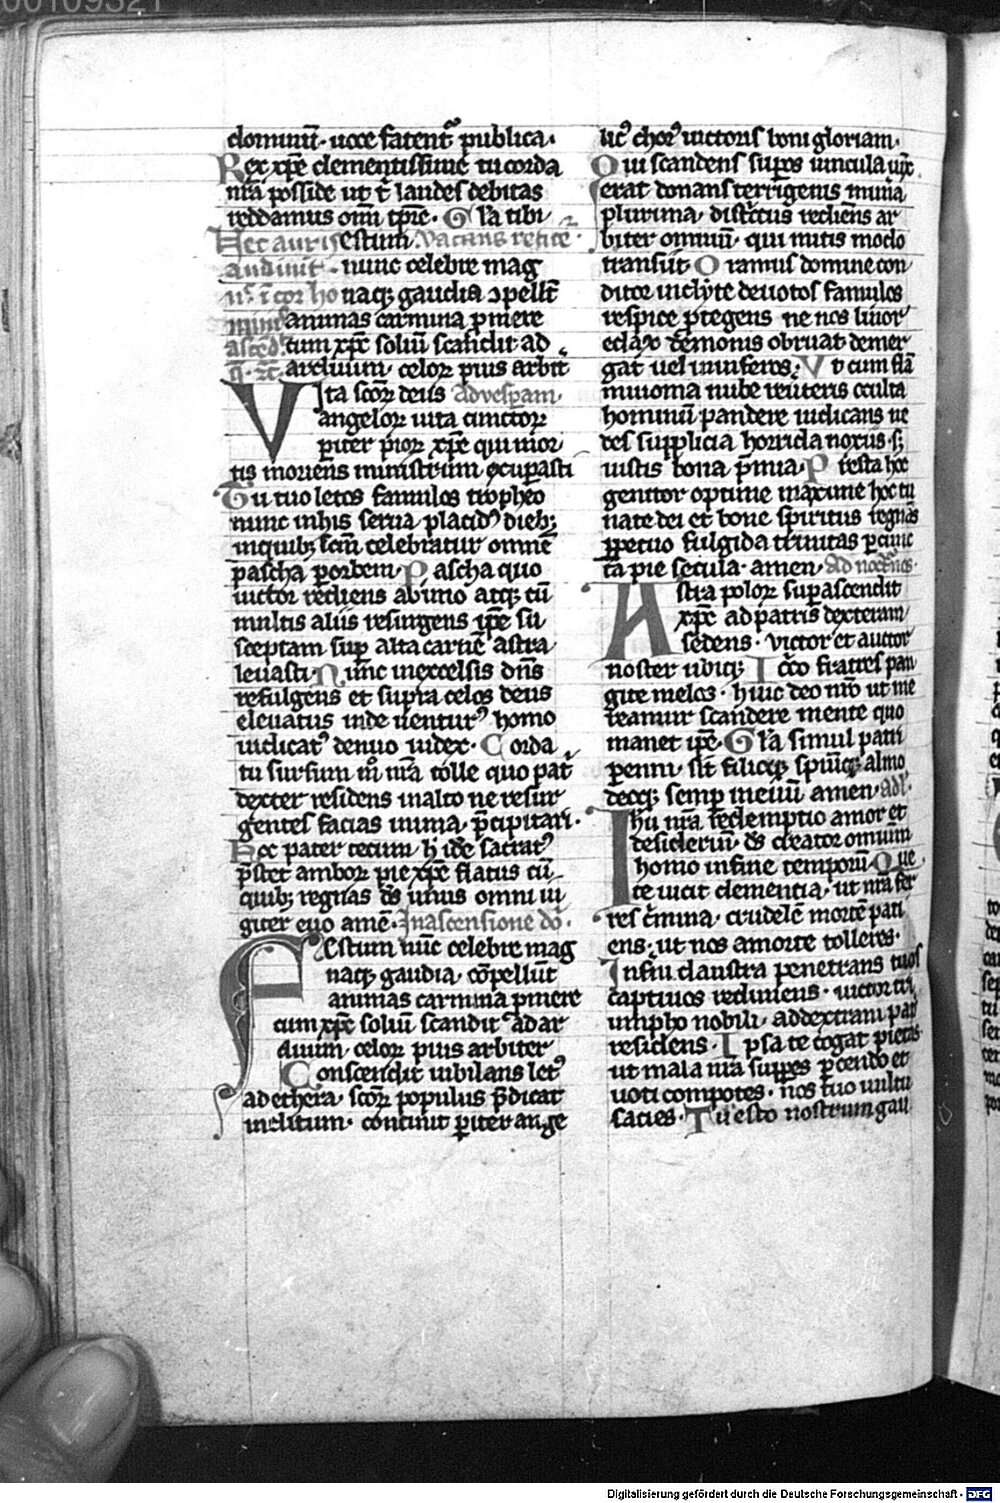 dominū· uoce fatent᷑ publica·
Rex xp̄e clementissime tu corda
nr̄a posside ut t̄ laudes debitas
reddamus om̄i tp̄re· Gl̄a tibi
Hec auris Estum· Vacans retite
audiuit· nunc celebre mag
cor ho naq; gaudia ↄpellt̄
animas carmina p̄mere
ascēd· cum xp̄c soliū scandit ad
arduum· celoꝝ pius arbit̄
VIta scōꝝ deus ad vesp̄am·
angeloꝝ uita cunctoꝝ
ꝑiter p̄ioꝝ xp̄e qui mor
tis moriens ministrum ex̄upasti
Tu tuo letos famulos tropheo
nunc in his serua placidꝰ dieb;
in quib; sc̄m celebratur omnē
pascha ꝑ orbem· Pascha quo
uictor rediens ab imo atq; cū
multis aliis resurgens ip̄e su
sceptam suꝑ alta carnē astra
leuasti· Nunc in excelsis dn̄s
refulgens et supra celos deus
eleuatus inde uenturꝰ homo
iudicatꝰ denuo iudex· Corda
tu sursum m̄ nr̄a tolle quo pat̄
dexter residens in alto ne resur
gentes facias in ima p̄cipitari·
Hoc pater tecum h̄ ide sacratꝰ
p̄stet amboꝝ pie xp̄e flatus cū
quib; regnas ds̄ unus omni iu
giter euo amē· In ascensione do·
FEstum nūc celebre mag
naq; gaudia· cōpellūt
animas carmina p̄mere
cum xp̄c soliū scandit ad ar
duum· celoꝝ pius arbiter
Conscendit iubilans letꝰ
ad ethera· scōꝝ populus p̄dicat
inclitum· concinit ꝑiter ange
licꝰ chorꝰ uictoris boni gloriam·
Qui scandens suꝑos uincula uīx̄
erat donans terrigenis mun̄a
plurima· districtus rediens ar
biter omniū· qui mitis modo
transiit· Oramus domine con
ditor inclyte deuotos famulos
respice ꝓtegens ne nos liuor
edax demonis obruat demer
gat uel in inferos· Vt cum flā
miuoma nube reuteris occulta
hominū pandere iudicans ne
des supplicia horrida noxiis· s;
iustis bona p̄mia· Presta hoc
genitor optime maxime hoc tu
nate dei et bone spiritus regnās
ꝑpetuo fulgida trinitas ꝑ cunc
ta pie secula· amen· Ad nocturnos·
Astra poloꝝ suꝑ ascendit
xp̄c ad patris dexteram
sedens· victor et auctor
noster ubiq; Icc̄o fratres pan
gite melos· huic deo nr̄o ut me
reamur scandere mente quo
manet ip̄e· Gl̄a simul patri
ꝑenni· sit filioq; spiritui; almo
decq; semꝑ in euū amen· ad l·
Ihū nr̄a redemptio amor et
desideriū· ds̄ creator omnium
homo in fine temporū· Que
te uicit clementia· ut nr̄a fer
res c̄mina· crudelē mortē pati
ens· ut nos a morte tolleres·
Inferni claustra penetrans tuos
captiuos redimens· uictor tri
umpho nobili· ad dextram patr̄
residens· Ipsa te cogat pietas
ut mala nr̄a suꝑes ꝑcendo et
uoti compotes· nos tuo uultu
sacies· Tu esto nostrum gau
Digitalisierung gefördert durch die Deutsche Forschungsgemeinschaft - DFG